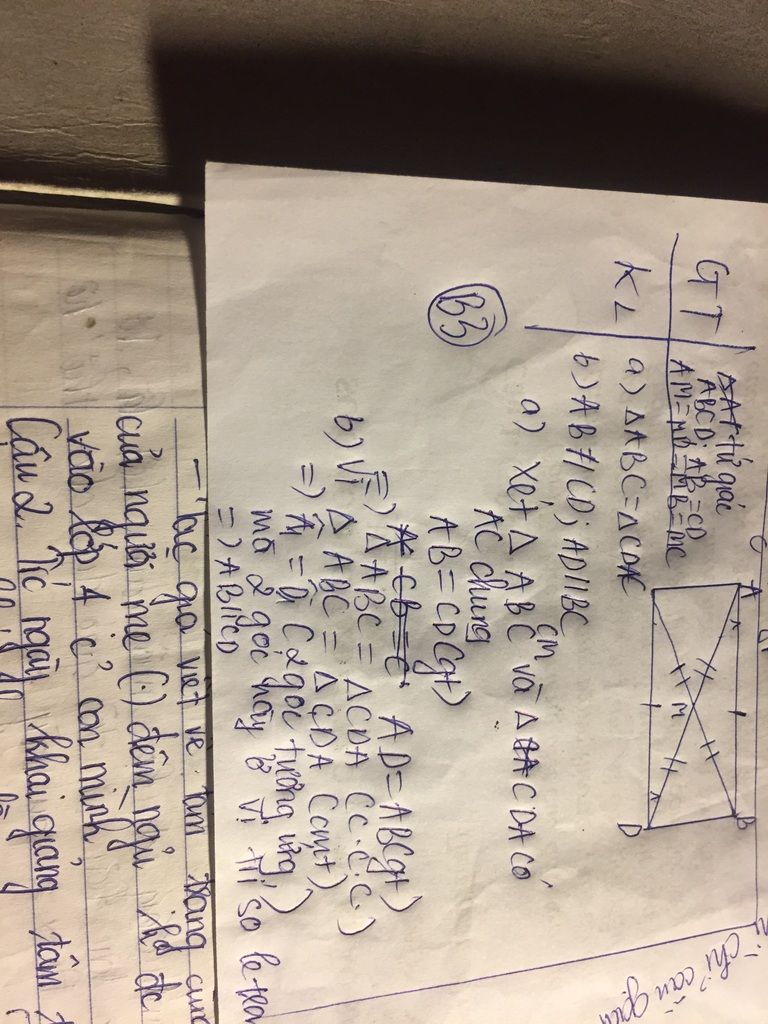 GT
tứ giác
ABCD; AB = CD
AM = MD = MB = MC
KL
a) ΔABC = ΔCDA
b) AB // CD; AD // BC
A
B
M
D
C
B3
a) Xét Δ ABC và Δ CDA có
AC chung
AB = CD (gt)
AD = BC (gt)
=) Δ ABC = Δ CDA (c.c.c)
b) Vì Δ ABC = Δ CDA (cmt)
=) Â1 = (2 góc tương ứng)
mà 2 góc này ở vị trí so le
=) AB // CD
chỉ cần
- Tác giả viết về tâm trạng
của người mẹ (.) đêm ngủ đc
vào lớp 1 c' con mình
Câu 2. Tg ngày khai giảng tâm